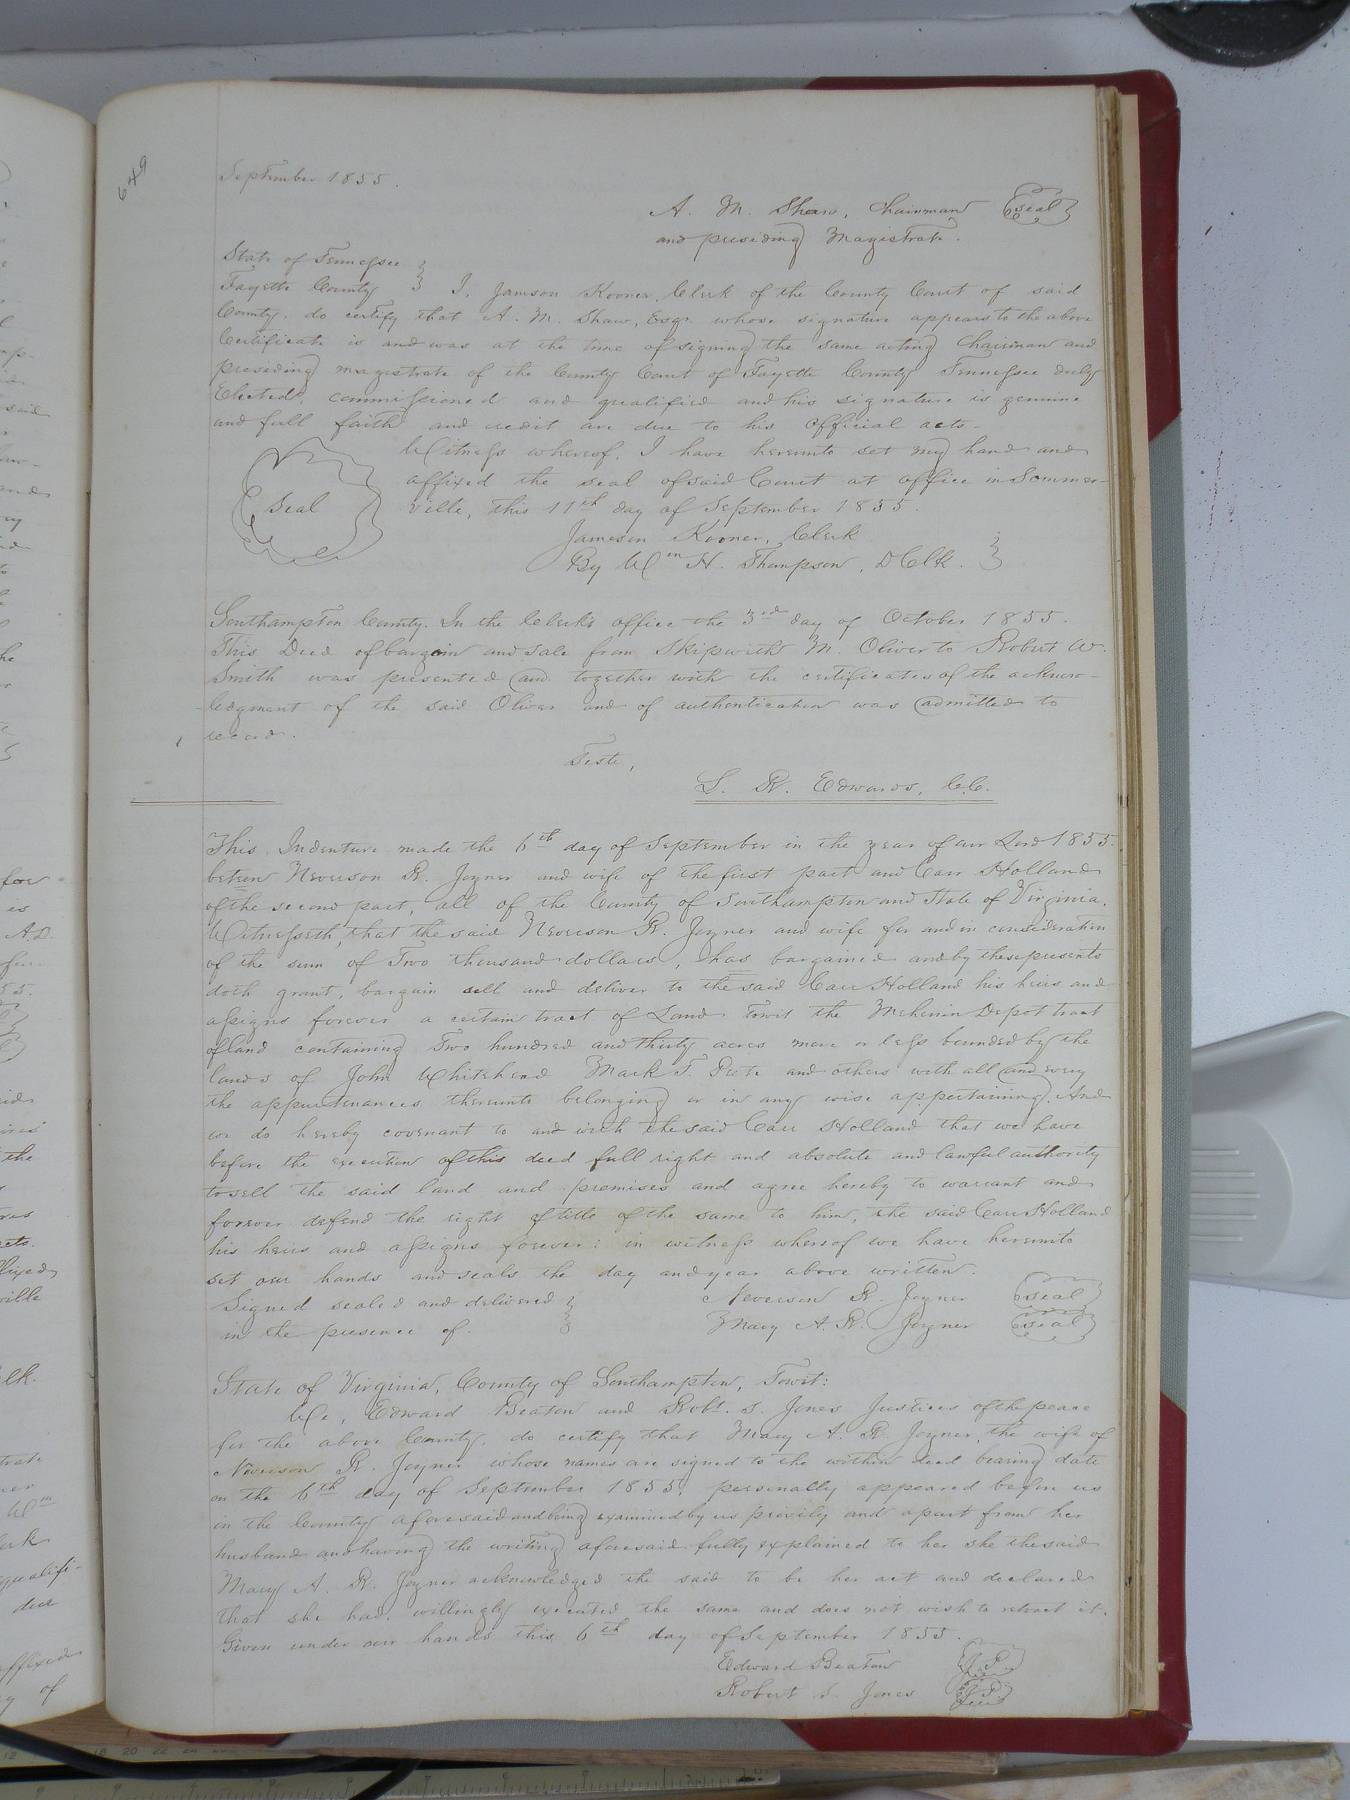 649
September 1855.
A. M. Shaw, Chairman (Seal)
and presiding Magistrate.
State of Tennessee
Fayette County } I, Jameson Kooner, Clerk of the County Court of said
County, do certify that A. M. Shaw, Esqr. whose signature appears to the above
Certificate is and was at the time of signing the same acting Chairman and
presiding magistrate of the County Court of Fayette County Tennessee duly
Elected, commissioned and qualified and his signature is genuine
and full faith and credit are due to his official acts.
Witness whereof, I have hereunto set my hand and
affixed the seal of said Court at office in Sommer-
Seal
ville, this 11th day of September 1855.
Jameson Kooner, Clerk
By Wm H. Thompson, D Clk.
Southampton County. In the Clerk's office the 3rd day of October 1855.
This Deed of bargain and sale from Skipwith M. Oliver to Robert W.
Smith was presented and together with the certificates of the acknow-
ledgment of the said Oliver and of authentication was admitted to
record.
Teste,
L. R. Edwards, C.C.
This Indenture made the 6th day of September in the year of our Lord 1855.
between Neverson R. Joyner and wife of the first part and Carr Holland
of the second part, all of the County of Southampton and State of Virginia.
Witnesseth, that the said Neverson R. Joyner and wife for and in consideration
of the sum of Two thousand dollars, has bargained and by these presents
doth grant, bargain sell and deliver to the said Carr Holland his heirs and
assigns forever a certain tract of Land Towit the Meherin Depot tract
of land containing Two hundred and thirty acres more or less bounded by the
lands of John Whitehead Mark T. and others with all and every
the appurtenances thereunto belonging or in any wise appertaining. And
we do hereby covenant to and with the said Carr Holland that we have
before the execution of this deed full right and absolute and lawful authority
to sell the said land and premises and agree hereby to warrant and
forever defend the right of title of the same to him, the said Carr Holland
his heirs and assigns forever: in witness whereof we have hereunto
set our hands and seals the day and year above written.
Signed sealed and delivered } Neverson R. Joyner (Seal)
in the presence of. Mary A. R. Joyner (Seal)
State of Virginia, County of Southampton, Towit:
We, Edward Beaton and Robt. S. Jones Justices of the peace
for the above County, do certify that Mary A. R. Joyner, the wife of
Neverson R. Joyner whose names are signed to the within deed bearing date
on the 6th day of September 1855, personally appeared before us
in the County aforesaid and being examined by us privily and apart from her
husband and having the writing aforesaid fully explained to her she the said
Mary A. R. Joyner acknowledged the said to be her act and declared
that she had willingly executed the same and does not wish to retract it.
Given under our hands this 6th day of September 1855.
Edward Beaton J.P.
Robert S. Jones J.P.